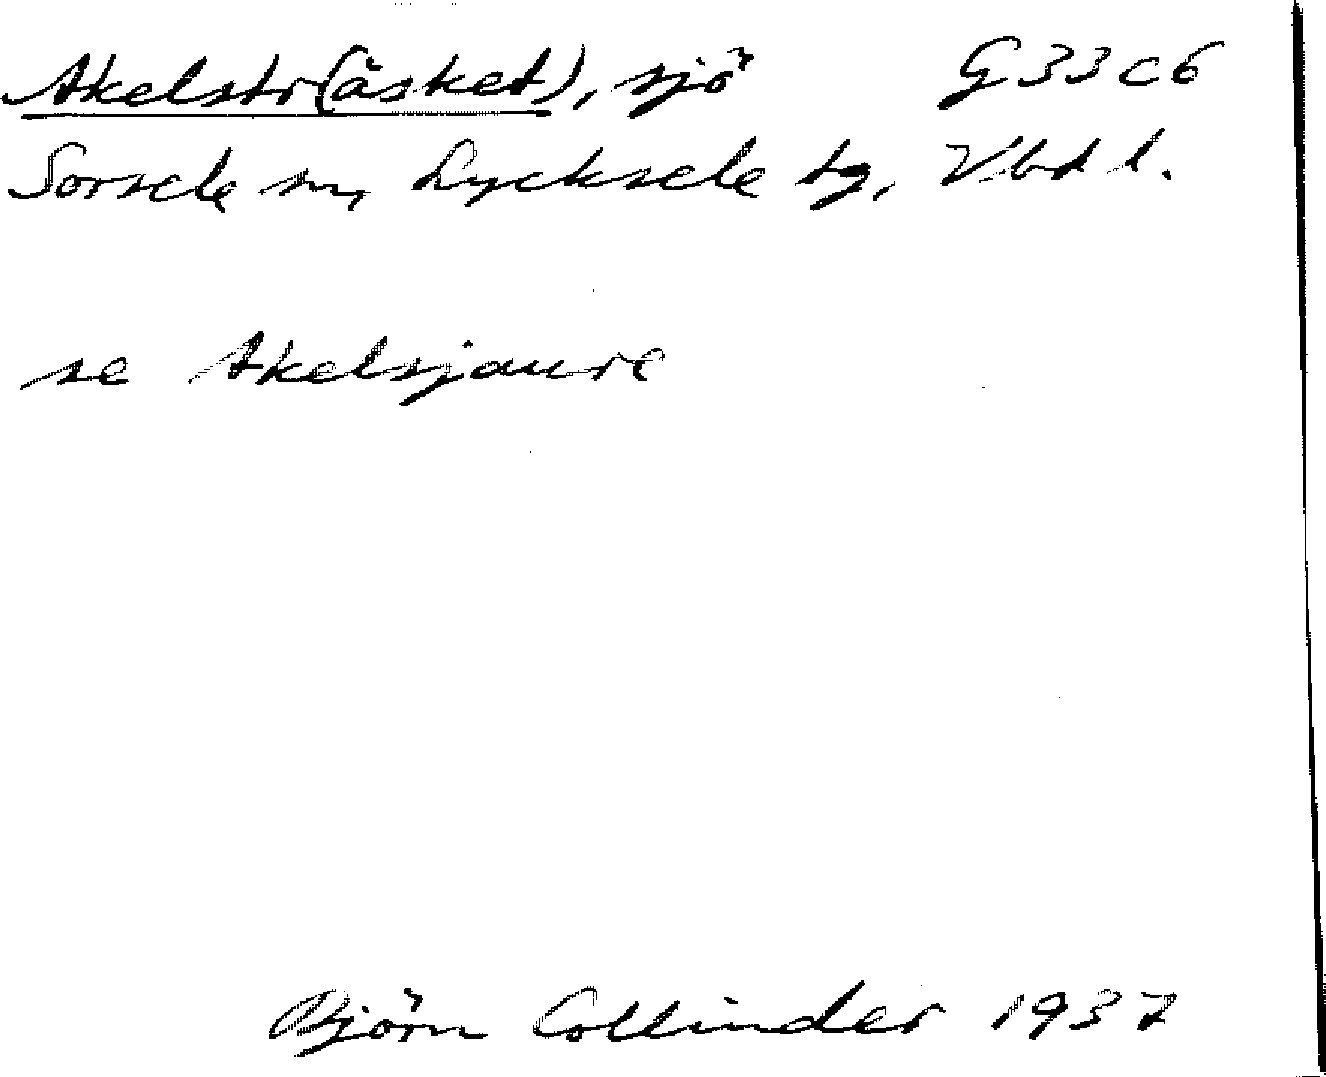 Akelstr(äsket), sjö G33c6
Sorsele sn, Lycksele tg, Vbd l.
se Akelsjaure
Björn Collinder 1937